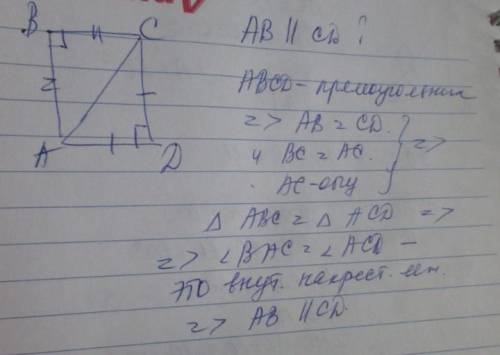 B C
A D
AB || CD ?
ABCD - прямоугольник
=> AB = CD.
и BC = AC.
AC - общ
} =>
△ ABC = △ ACD =>
=> ∠BAC = ∠ACD -
это внут. накрест. леж.
=> AB || CD.